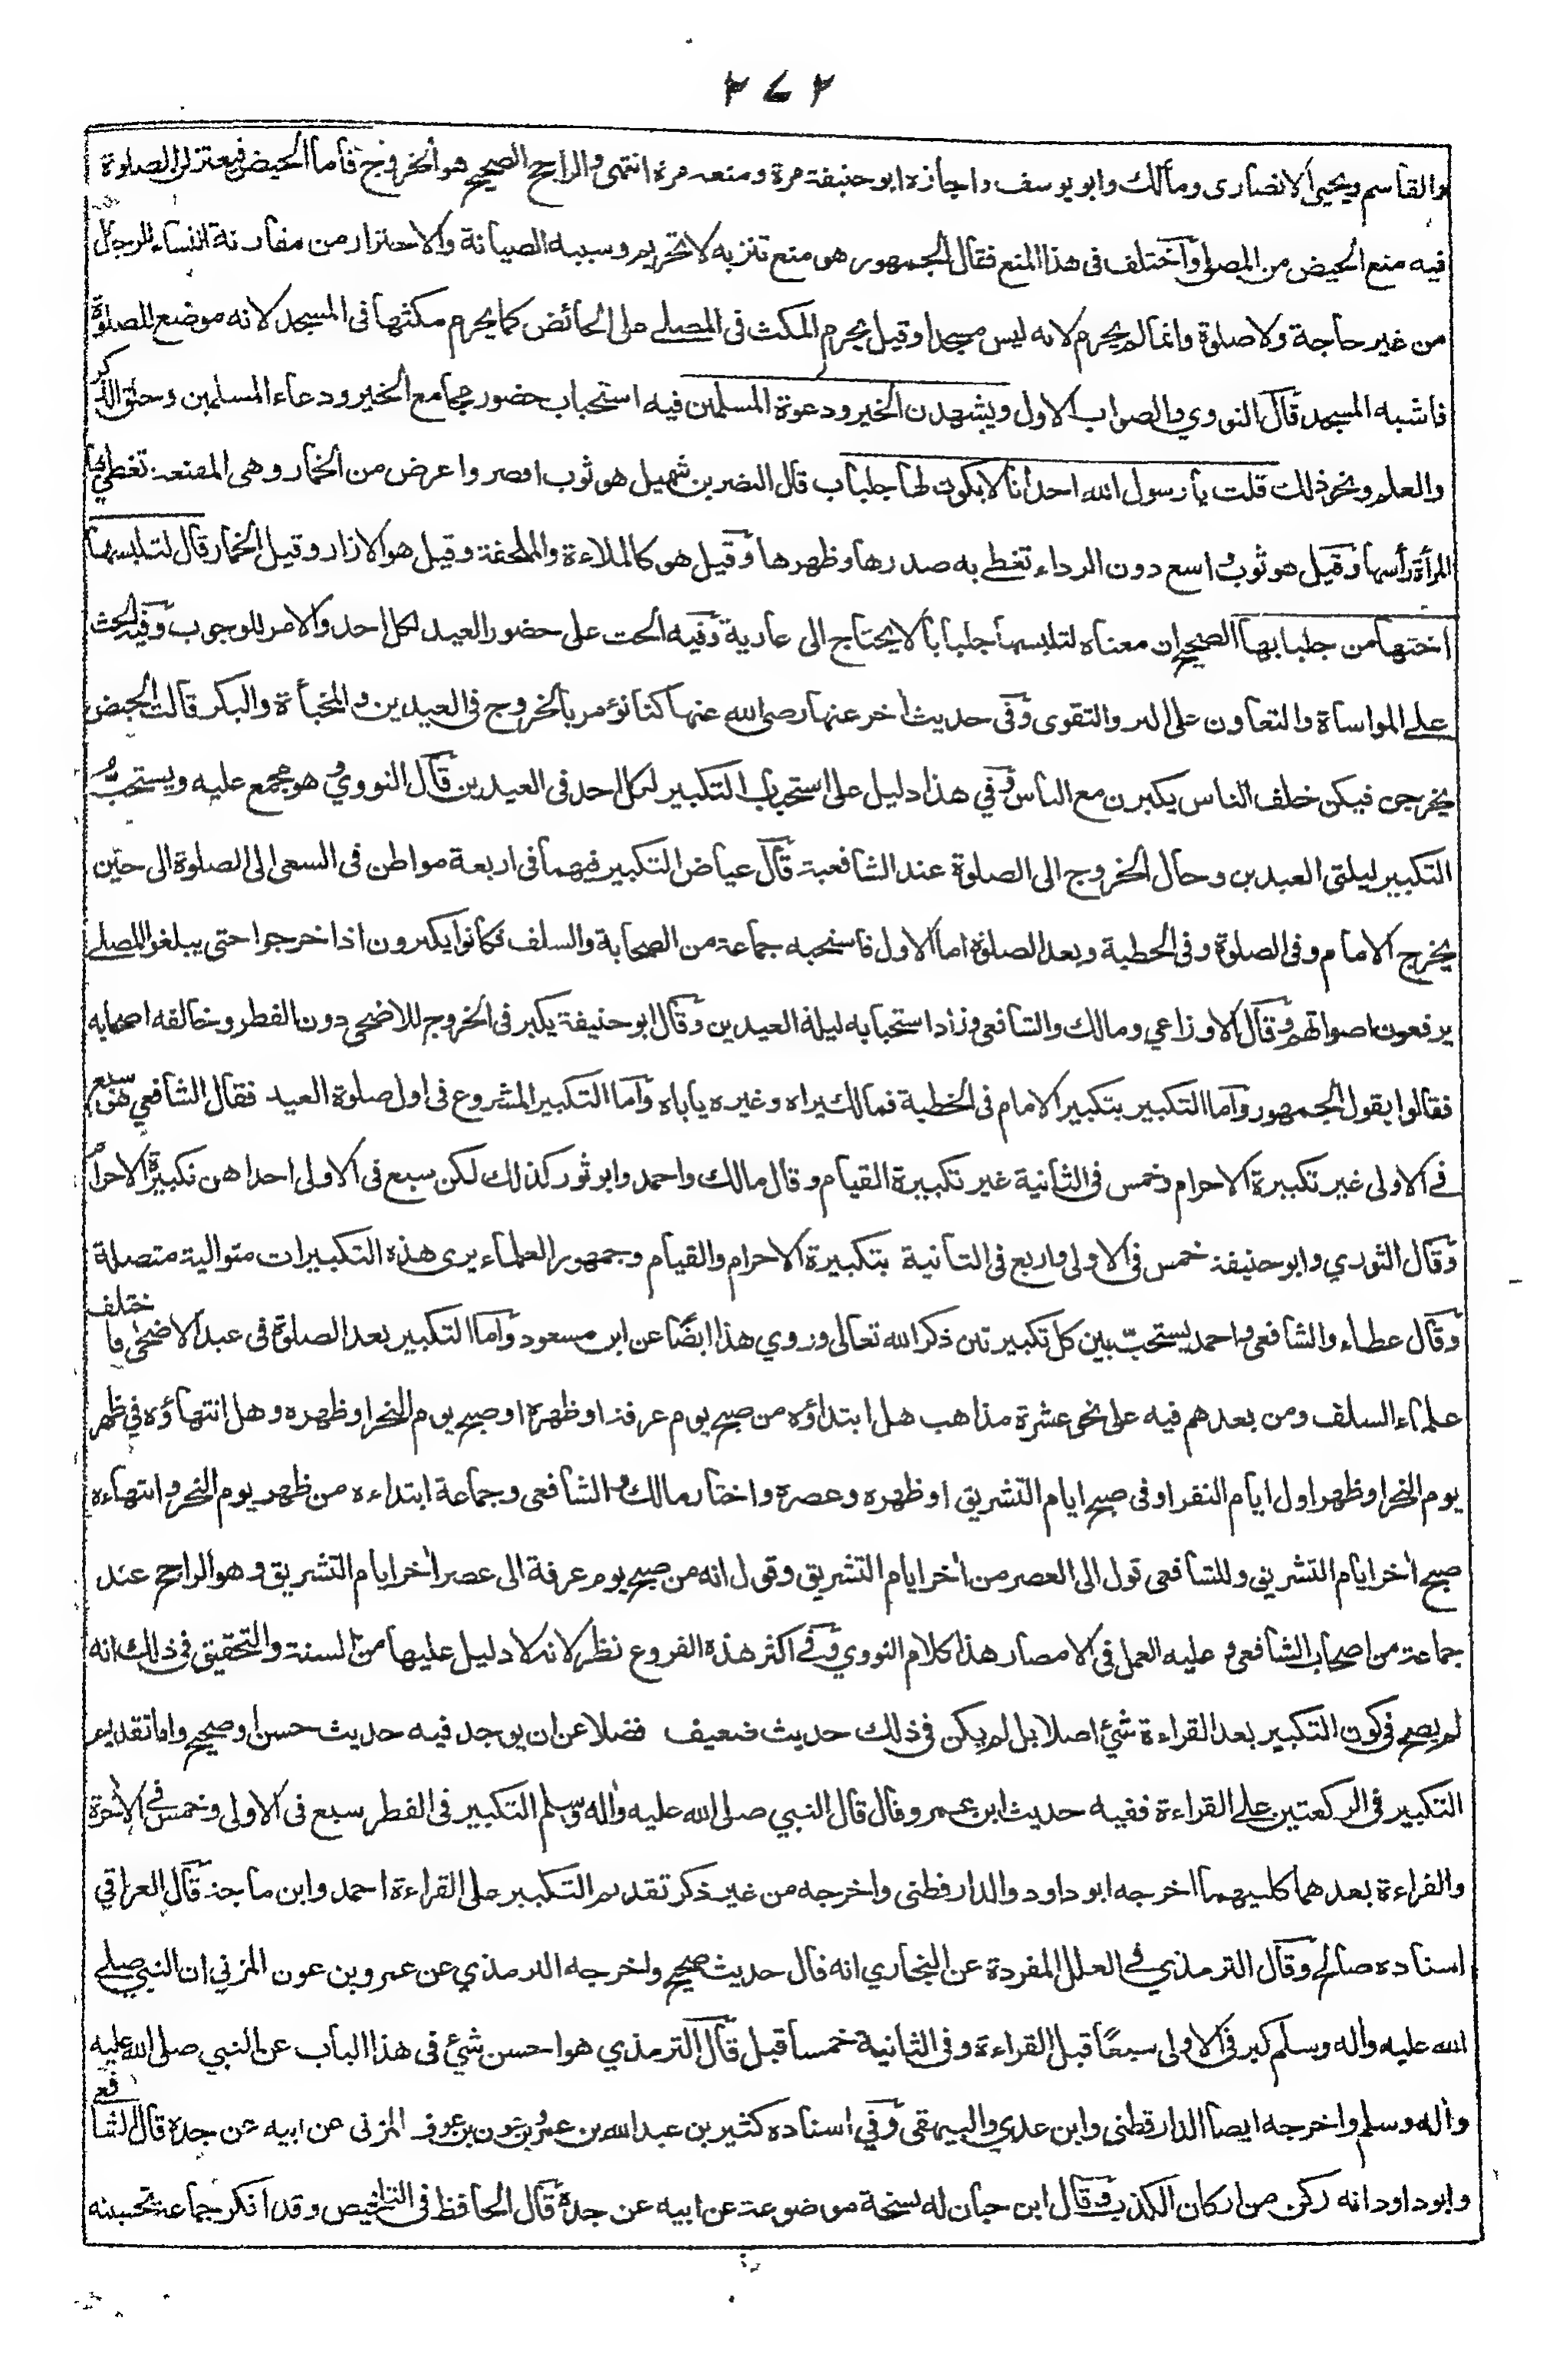 ٢٧٢
والقاسم ويحيى الانصارى ومالك وابو يوسف واجازه ابو حنيفة مرة ومنعه مرة انتهى والراجح الصحيح هو الخروج فاما الحيض فيعتزلن الصلوة
فيه منع الحيض من المصلى واختلف فى هذا المنع فقال الجمهور هى منع تنزيه لا تحريم وسببه الصيانة والاحتراز من مقارنة النساء للرجال
من غير حاجة ولا صلوة وانما لم يحرم لانه ليس مسجدا وقيل يحرم المكث فى المصلے على الحائض كما يحرم مكثها فى المسجد لانه موضع للصلوة
فاشبه المسجد قال النووي والصواب الاول ويشهدن الخير ودعوة المسلمين فيه استحباب حضور مجامع الخير ودعاء المسلمين وحلق الذكر
والعلم ونحو ذلك قلت يا رسول الله احدانا لا يكون لها جلباب قال النضر بن شميل هو ثوب اقصر واعرض من الخمار وهى المقنعة تغطي بها
المرأة رأسها وقيل هو ثوب واسع دون الرداء تغطے به صدرها وظهرها وقيل هو كالملاءة والملحفة وقيل هو الازار وقيل الخمار قال لتلبسها
اختها من جلبابها الصحيح ان معناه لتلبسها جلبابا لا يحتاج الى عارية وفيه الحث على حضور العيد لكل احد والامر للوجوب وفيه الحث
علے المواساة والتعاون على البر والتقوى وفى حديث اخر عنها رضى الله عنها كنا نؤمر بالخروج فى العيدين والمخبأة والبكر قالت الحيض
يخرجن فيكن خلف الناس يكبرن مع الناس وفي هذا دليل على استحباب التكبير لكل احد فى العيدين قال النووي وهو مجمع عليه ويستحب
التكبير ليلتى العيدين وحال الخروج الى الصلوة عند الشافعية قال عياض التكبير فيهما فى اربعة مواطن فى السعى الى الصلوة الى حين
يخرج الامام وفى الصلوة وفى الخطبة وبعد الصلوة اما الاول فاستحبه جماعة من الصحابة والسلف فكانوا يكبرون اذا خرجوا حتى يبلغوا المصلے
يرفعون اصواتهم وقال الاوزاعي ومالك والشافعى وزاد استحبابه ليلة العيدين وقال ابو حنيفة يكبر فى الخروج للاضحى دون الفطر وخالفه اصحابه
فقالوا بقول الجمهور واما التكبير بتكبير الامام فى الخطبة فمالك يراه وغيره ياباه واما التكبير المشروع فى اول صلوة العيد فقال الشافعي هو سبع
فے الاولى غير تكبيرة الاحرام وخمس فى الثانية غير تكبيرة القيام وقال مالك واحمد وابو ثور كذلك لكن سبع فى الاولى احداهن تكبيرة الاحرام
وقال الثوري وابو حنيفة خمس فى الاولى واربع فى الثانية بتكبيرة الاحرام والقيام وجمهور العلماء يرى هذه التكبيرات متوالية متصلة
وقال عطاء والشافعى واحمد يستحب بين كل تكبيرتين ذكر الله تعالى وروي هذا ايضا عن ابن مسعود واما التكبير بعد الصلوة فى عيد الاضحى فاختلف
علماء السلف ومن بعدهم فيه على نحو عشرة مذاهب هل ابتداؤه من صبح يوم عرفة او ظهره او صبح يوم النحر او ظهره وهل انتهاؤه في ظهر
يوم النحر او ظهر اول ايام النفر او فى صبح ايام التشريق او ظهره وعصره واختار مالك والشافعى وجماعة ابتداءه من ظهر يوم النحر وانتهاءه
صبح اخر ايام التشريق وللشافعى قول الى العصر من اخر ايام التشريق وقول انه من صبح يوم عرفة الى عصر اخر ايام التشريق وهو الراجح عند
جماعة من اصحاب الشافعى وعليه العمل فى الامصار هذا كلام النووي وفے اكثر هذه الفروع نظر لانه لا دليل عليها من السنة والتحقيق فى ذلك انه
لم يصح فى كون التكبير بعد القراءة شئ اصلا بل لم يكن فى ذلك حديث ضعيف فضلا عن ان يوجد فيه حديث حسن او صحيح واما تقديم
التكبير فى الركعتين علے القراءة ففيه حديث ابن عمرو قال قال النبي صلى الله عليه واله وسلم التكبير فى الفطر سبع فى الاولى وخمس فے الاخرة
والقراءة بعدهما كليهما اخرجه ابو داود والدارقطنى واخرجه من غير ذكر تقديم التكبير على القراءة احمد وابن ماجة قال العراقي
اسناده صالح وقال الترمذي فے العلل المفردة عن البخاري انه قال حديث صحيح واخرجه الترمذي عن عمرو بن عون المزني ان النبي صلے
الله عليه واله وسلم كبر فى الاولى سبعا قبل القراءة وفى الثانية خمسا قبل قال الترمذي هو احسن شئ فى هذا الباب عن النبي صلى الله عليه
واله وسلم واخرجه ايضا الدارقطنى وابن عدي والبيهقى وفي اسناده كثير بن عبد الله بن عمرو بن عوف المزنى عن ابيه عن جده قال الشافعے
وابو داود انه ركن من اركان الكذب وقال ابن حبان له نسخة موضوعة عن ابيه عن جده قال الحافظ فى التلخيص وقد انكر جماعة تحسينه